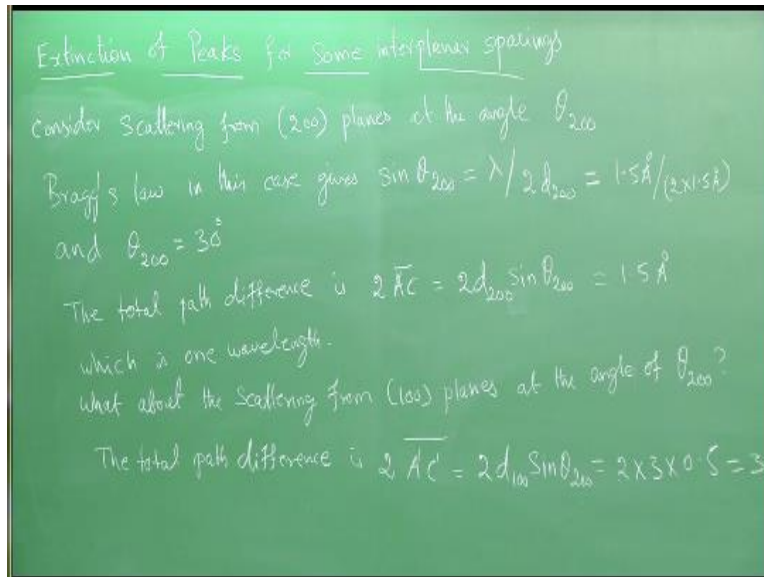 Extinction of Peaks for Some interplanar spacings
Consider Scattering from (200) planes at the angle θ₂₀₀
Bragg's law in this case gives sin θ₂₀₀ = λ/2d₂₀₀ = 1.5Å/(2x1.5Å)
and θ₂₀₀ = 30°
The total path difference is 2 A̅C̅ = 2d₂₀₀ sin θ₂₀₀ = 1.5Å
which is one wavelength.
What about the scattering from (100) planes at the angle of θ₂₀₀?
The total path difference is 2 A̅'̅C̅'̅ = 2d₁₀₀ Sinθ₂₀₀ = 2x3x0.5 = 3